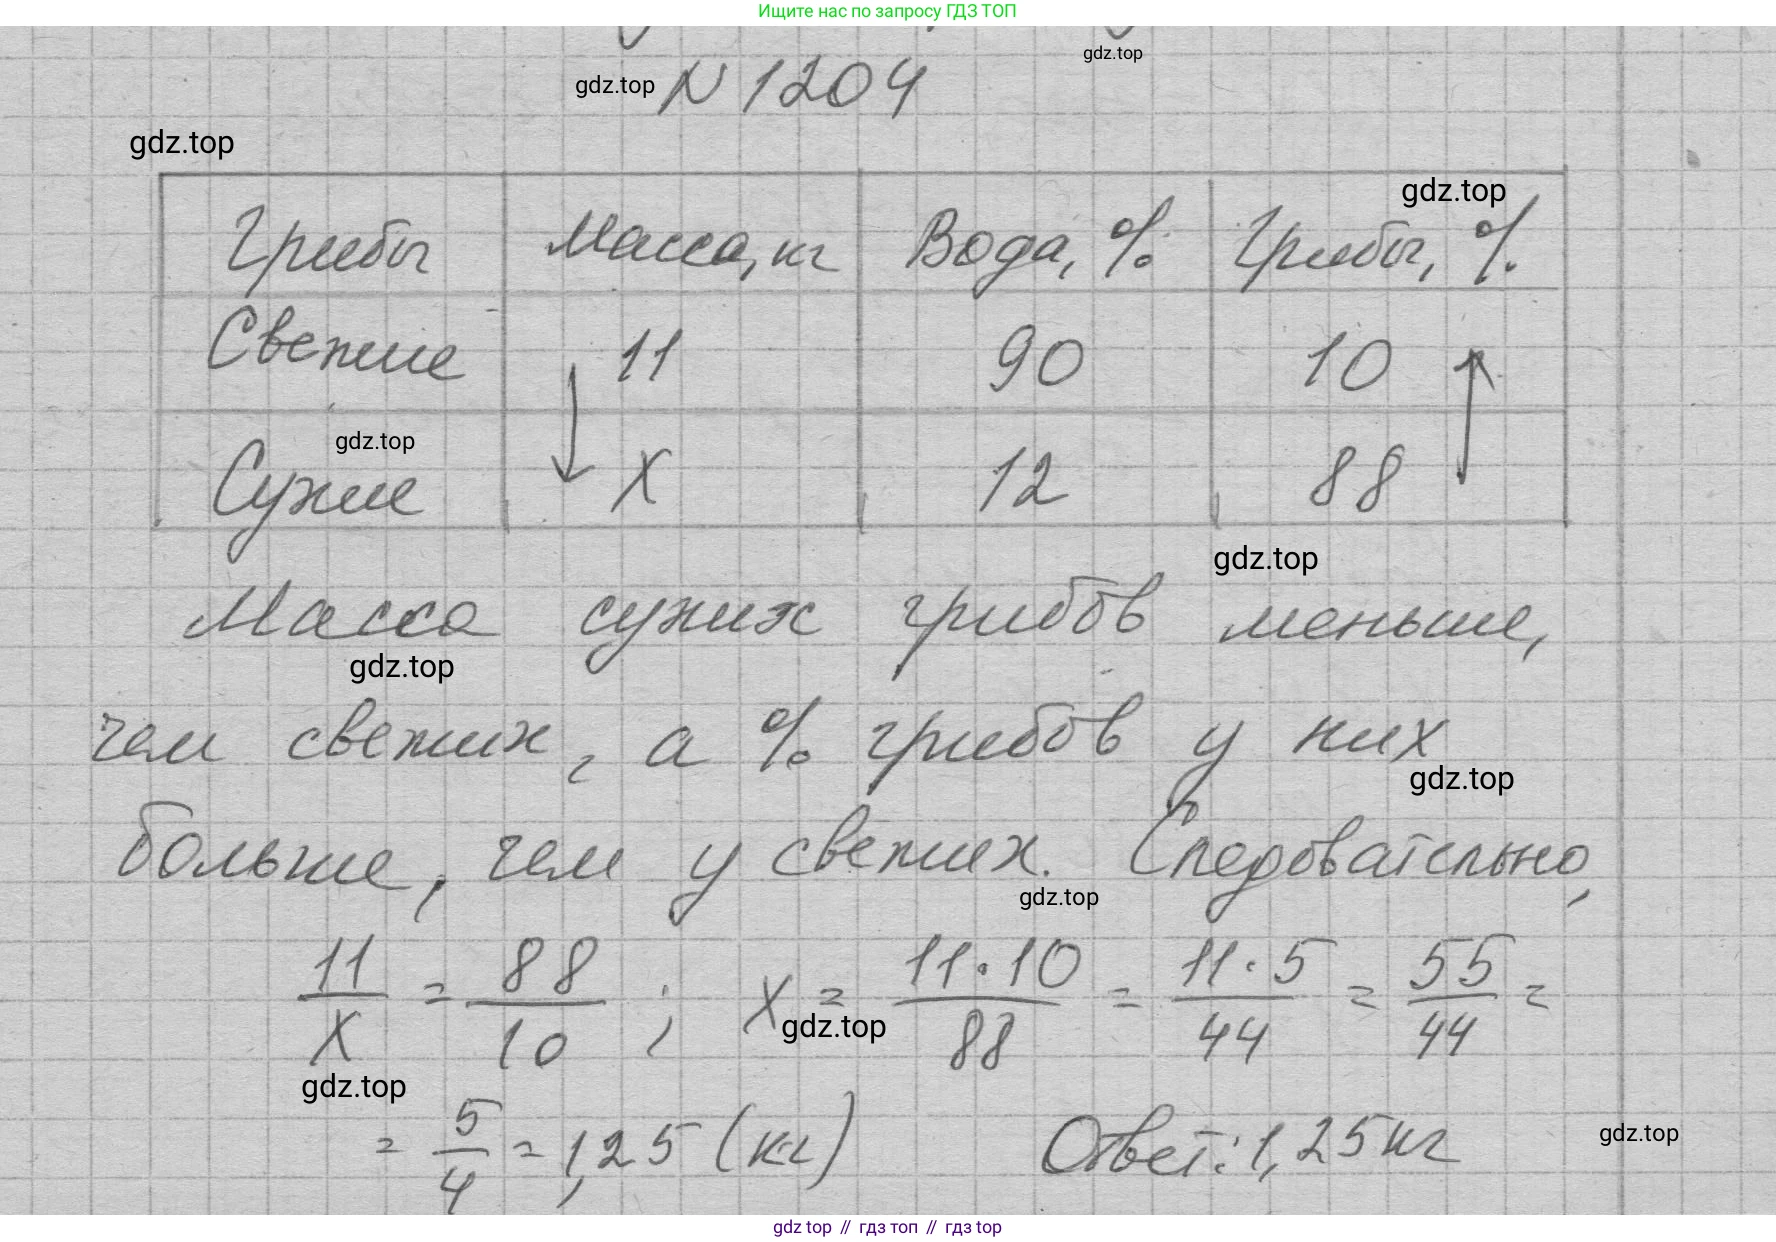 Ищите нас по запросу ГДЗ ТОП
gdz.top
gdz.top N 1204
gdz.top
gdz.top
Грибы Масса, кг Вода, % Грибы, %
Свежие 11 90 10
gdz.top
Сухие X 12 88
gdz.top
Масса сухих грибов меньше,
gdz.top
чем свежих, а % грибов у них
gdz.top
больше, чем у свежих. Следовательно,
gdz.top
11/X = 88/10 ; X = 11·10/88 = 11·5/44 = 55/44 =
gdz.top
gdz.top
= 5/4 = 1,25 (кг) Ответ: 1,25 кг
gdz.top
gdz top // гдз топ // гдз top